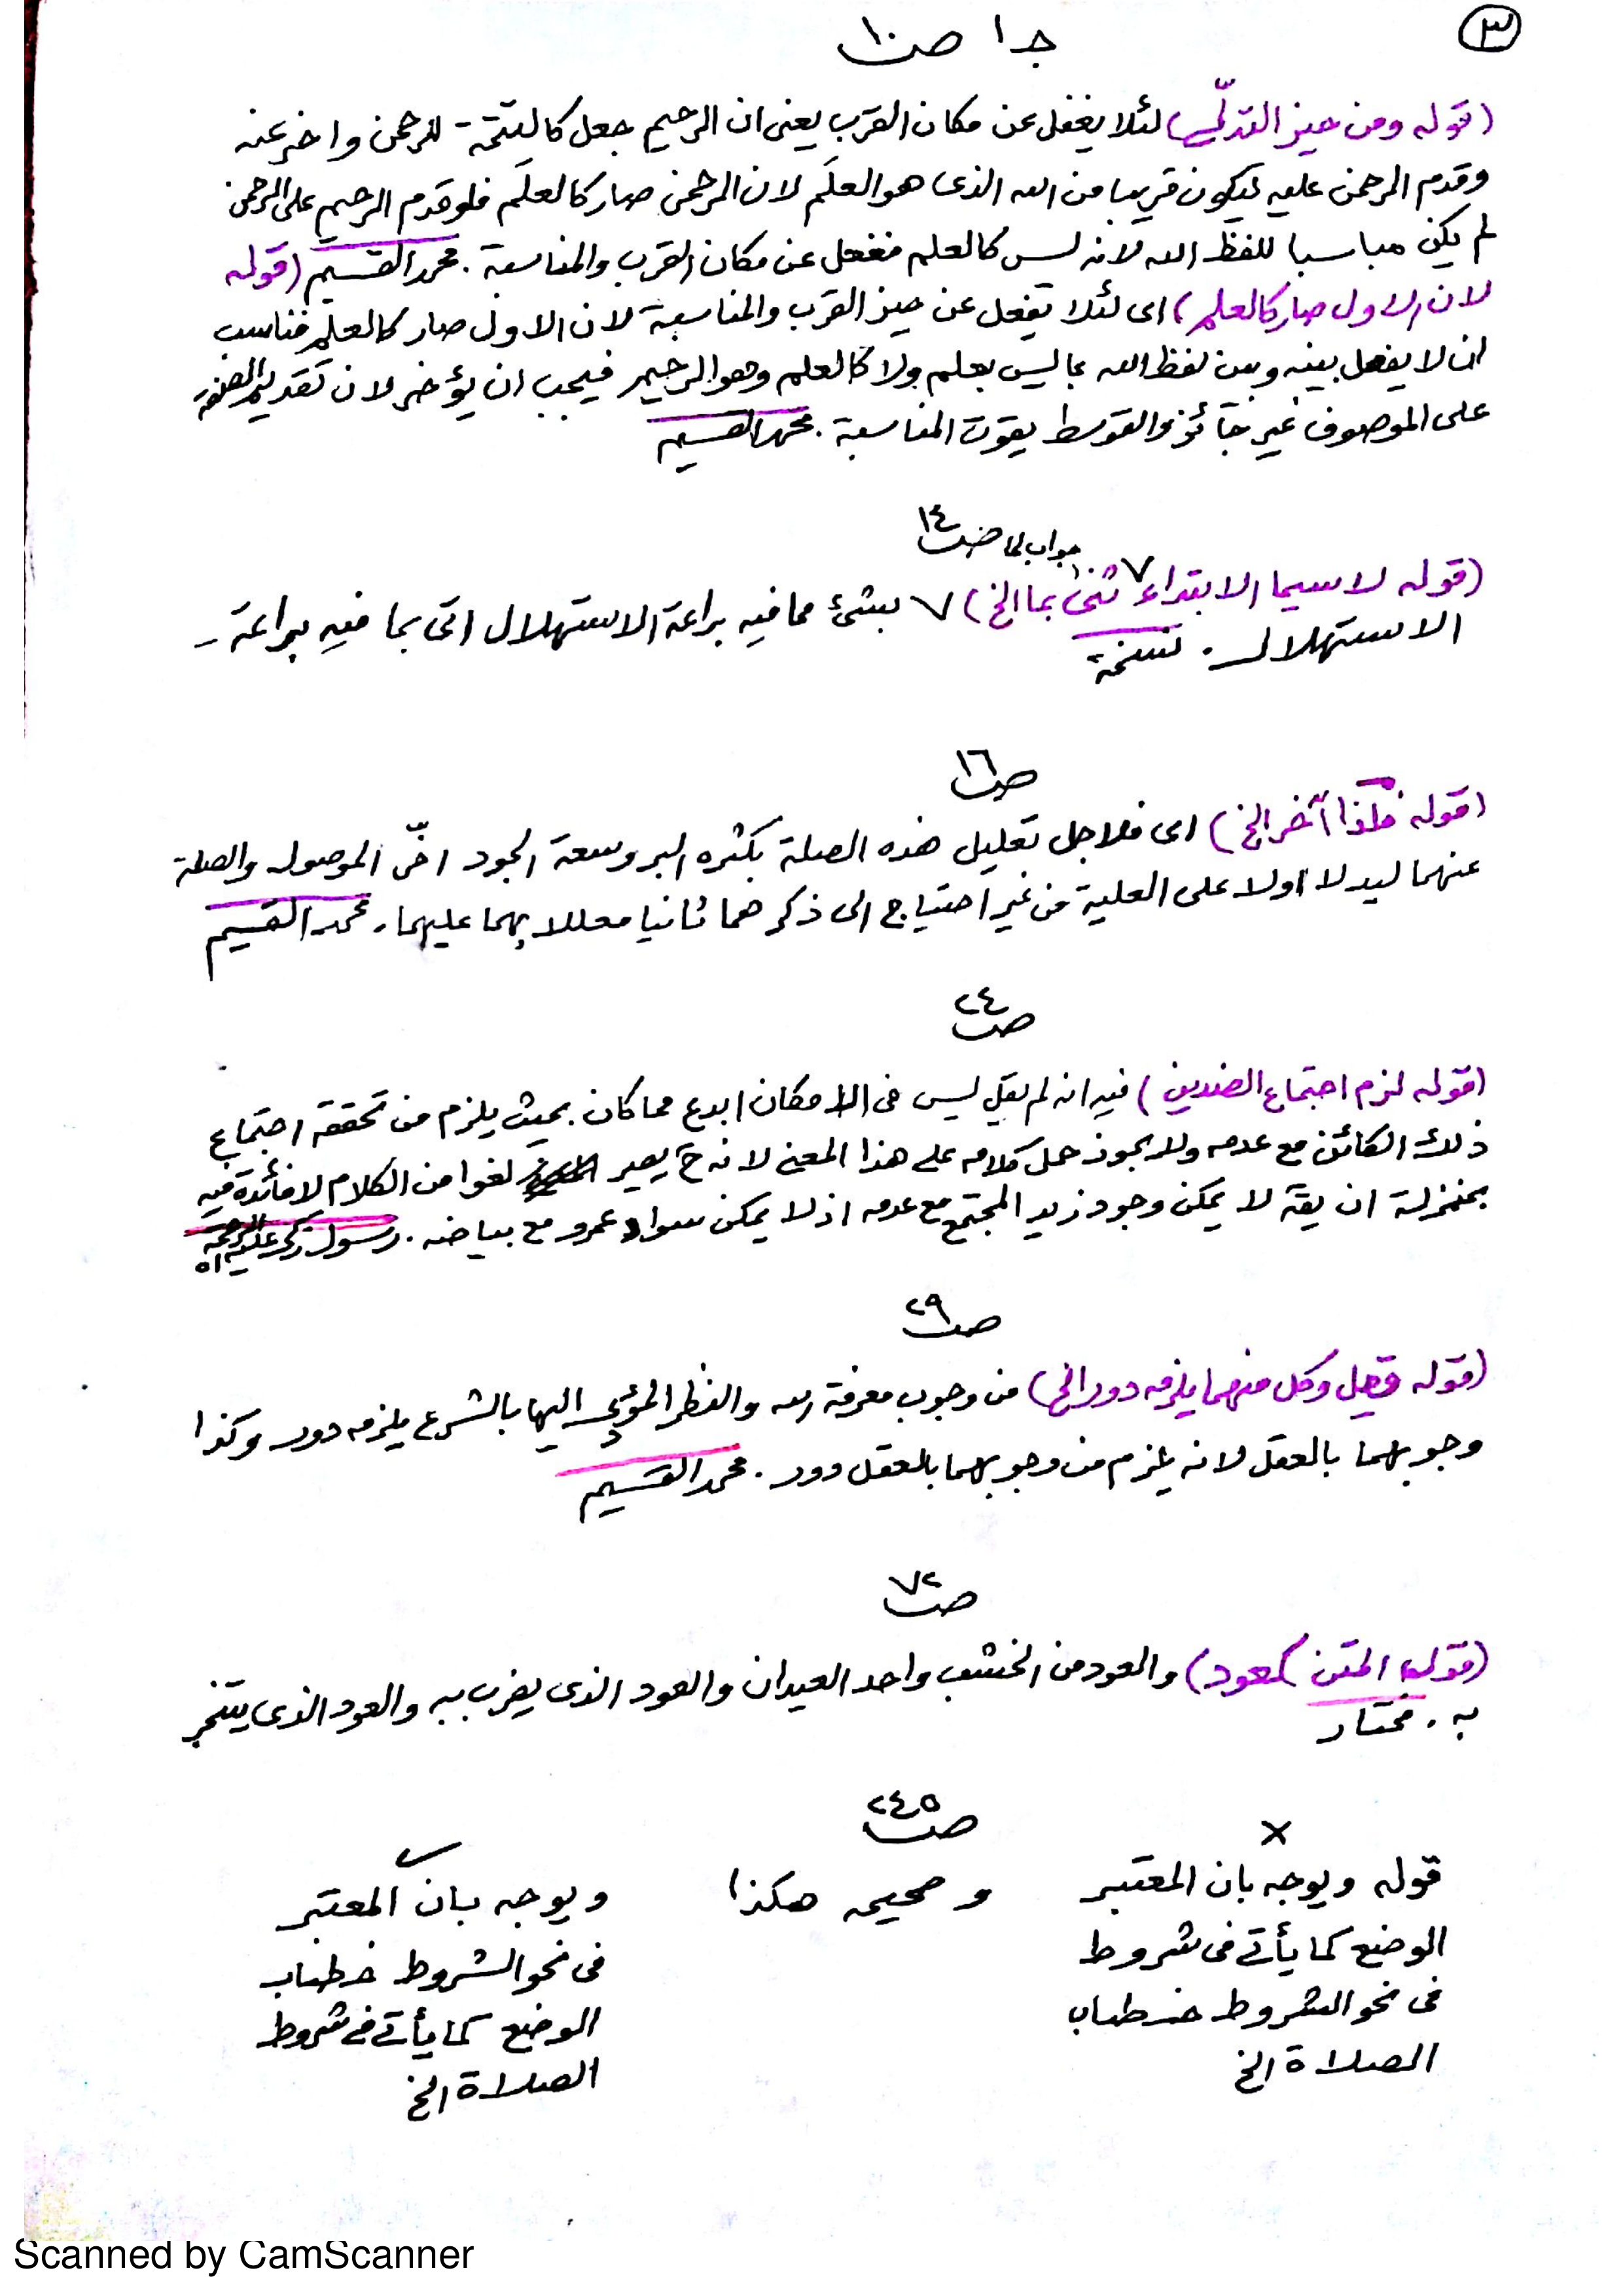 ٣
جـ ١ صـ ١٠
(قوله ومن حيز التدلّي) لئلا يغفل عن مكان القرب يعنى ان الرحيم جعل كالتتمة للرحمن واخر عنه
وقدم الرحمن عليه ليكون قريبا من الله الذى هو العلَم لان الرحمن صار كالعلَم فلو قدم الرحيم على الرحمن
لم يكن مناسبا للفظ الله لانه ليس كالعلم فغفل عن مكان القرب والمناسبة . محمد القسيم (قوله
لان الاول صار كالعلم) اى لئلا يغفل عن حيز القرب والمناسبة لان الاول صار كالعلم فناسب
ان لا يفصل بينه وبين لفظ الله بما ليس بعلم ولا كالعلم وهو الرحيم فيجب ان يؤخر لان تقديم الصفة
على الموصوف غير جائز والتوسط يفوت المناسبة . محمد القسيم
جواب لما صـ ١٤
(قوله لا سيما الابتداء ٧ ثنى بما الخ) ٧ بشئ مما فيه براعة الاستهلال اتى بما فيه براعة
الاستهلال . نسخة
صـ ١٦
(قوله فلذا آخر الخ) اى فلاجل تعليل هذه الصلة بكثره البر وسعة الجود اخّر الموصول والصلة
عنهما ليدلا اولا على العلية من غير احتياج الى ذكرهما ثانيا معللا بهما عليهما . محمد القسيم
صـ ٢٤
(قوله لزم اجتماع الضدين) فيه انه لم يقل ليس فى الامكان ابدع مما كان بحيث يلزم من تحققه اجتماع
ذلك الكائن مع عدمه ولا يجوز حمل كلامه على هذا المعنى لانه ح يصير لغوا من الكلام لا فائدة فيه
بمنزلة ان يقة لا يمكن وجود زيد المجتمع مع عدمه اذ لا يمكن سواد عمرو مع بياضه . رسول زكى عليه الرحمة اه
صـ ٢٩
(قوله قيل وكل منهما يلزمه دور الخ) من وجوب معرفة الله والنظر المؤدي اليها بالشرع يلزمه دور وكذا
وجوبهما بالعقل لانه يلزم من وجوبهما بالعقل دور . محمد القسيم
صـ ٧٢
(قوله المتن كعود) والعود من الخشب واحد العيدان والعود الذى يضرب به والعود الذى يتبخر
به . مختار
صـ ٢٤٥
×
قوله ويوجه بان المعتبر
الوضع كما يأتى فى شروط
فى نحو الشروط خطاب
الصلاة الخ
وصحيحه هكذا
ويوجه بان المعتبر
فى نحو الشروط خطاب
الوضع كما يأتى فى شروط
الصلاة الخ
Scanned by CamScanner